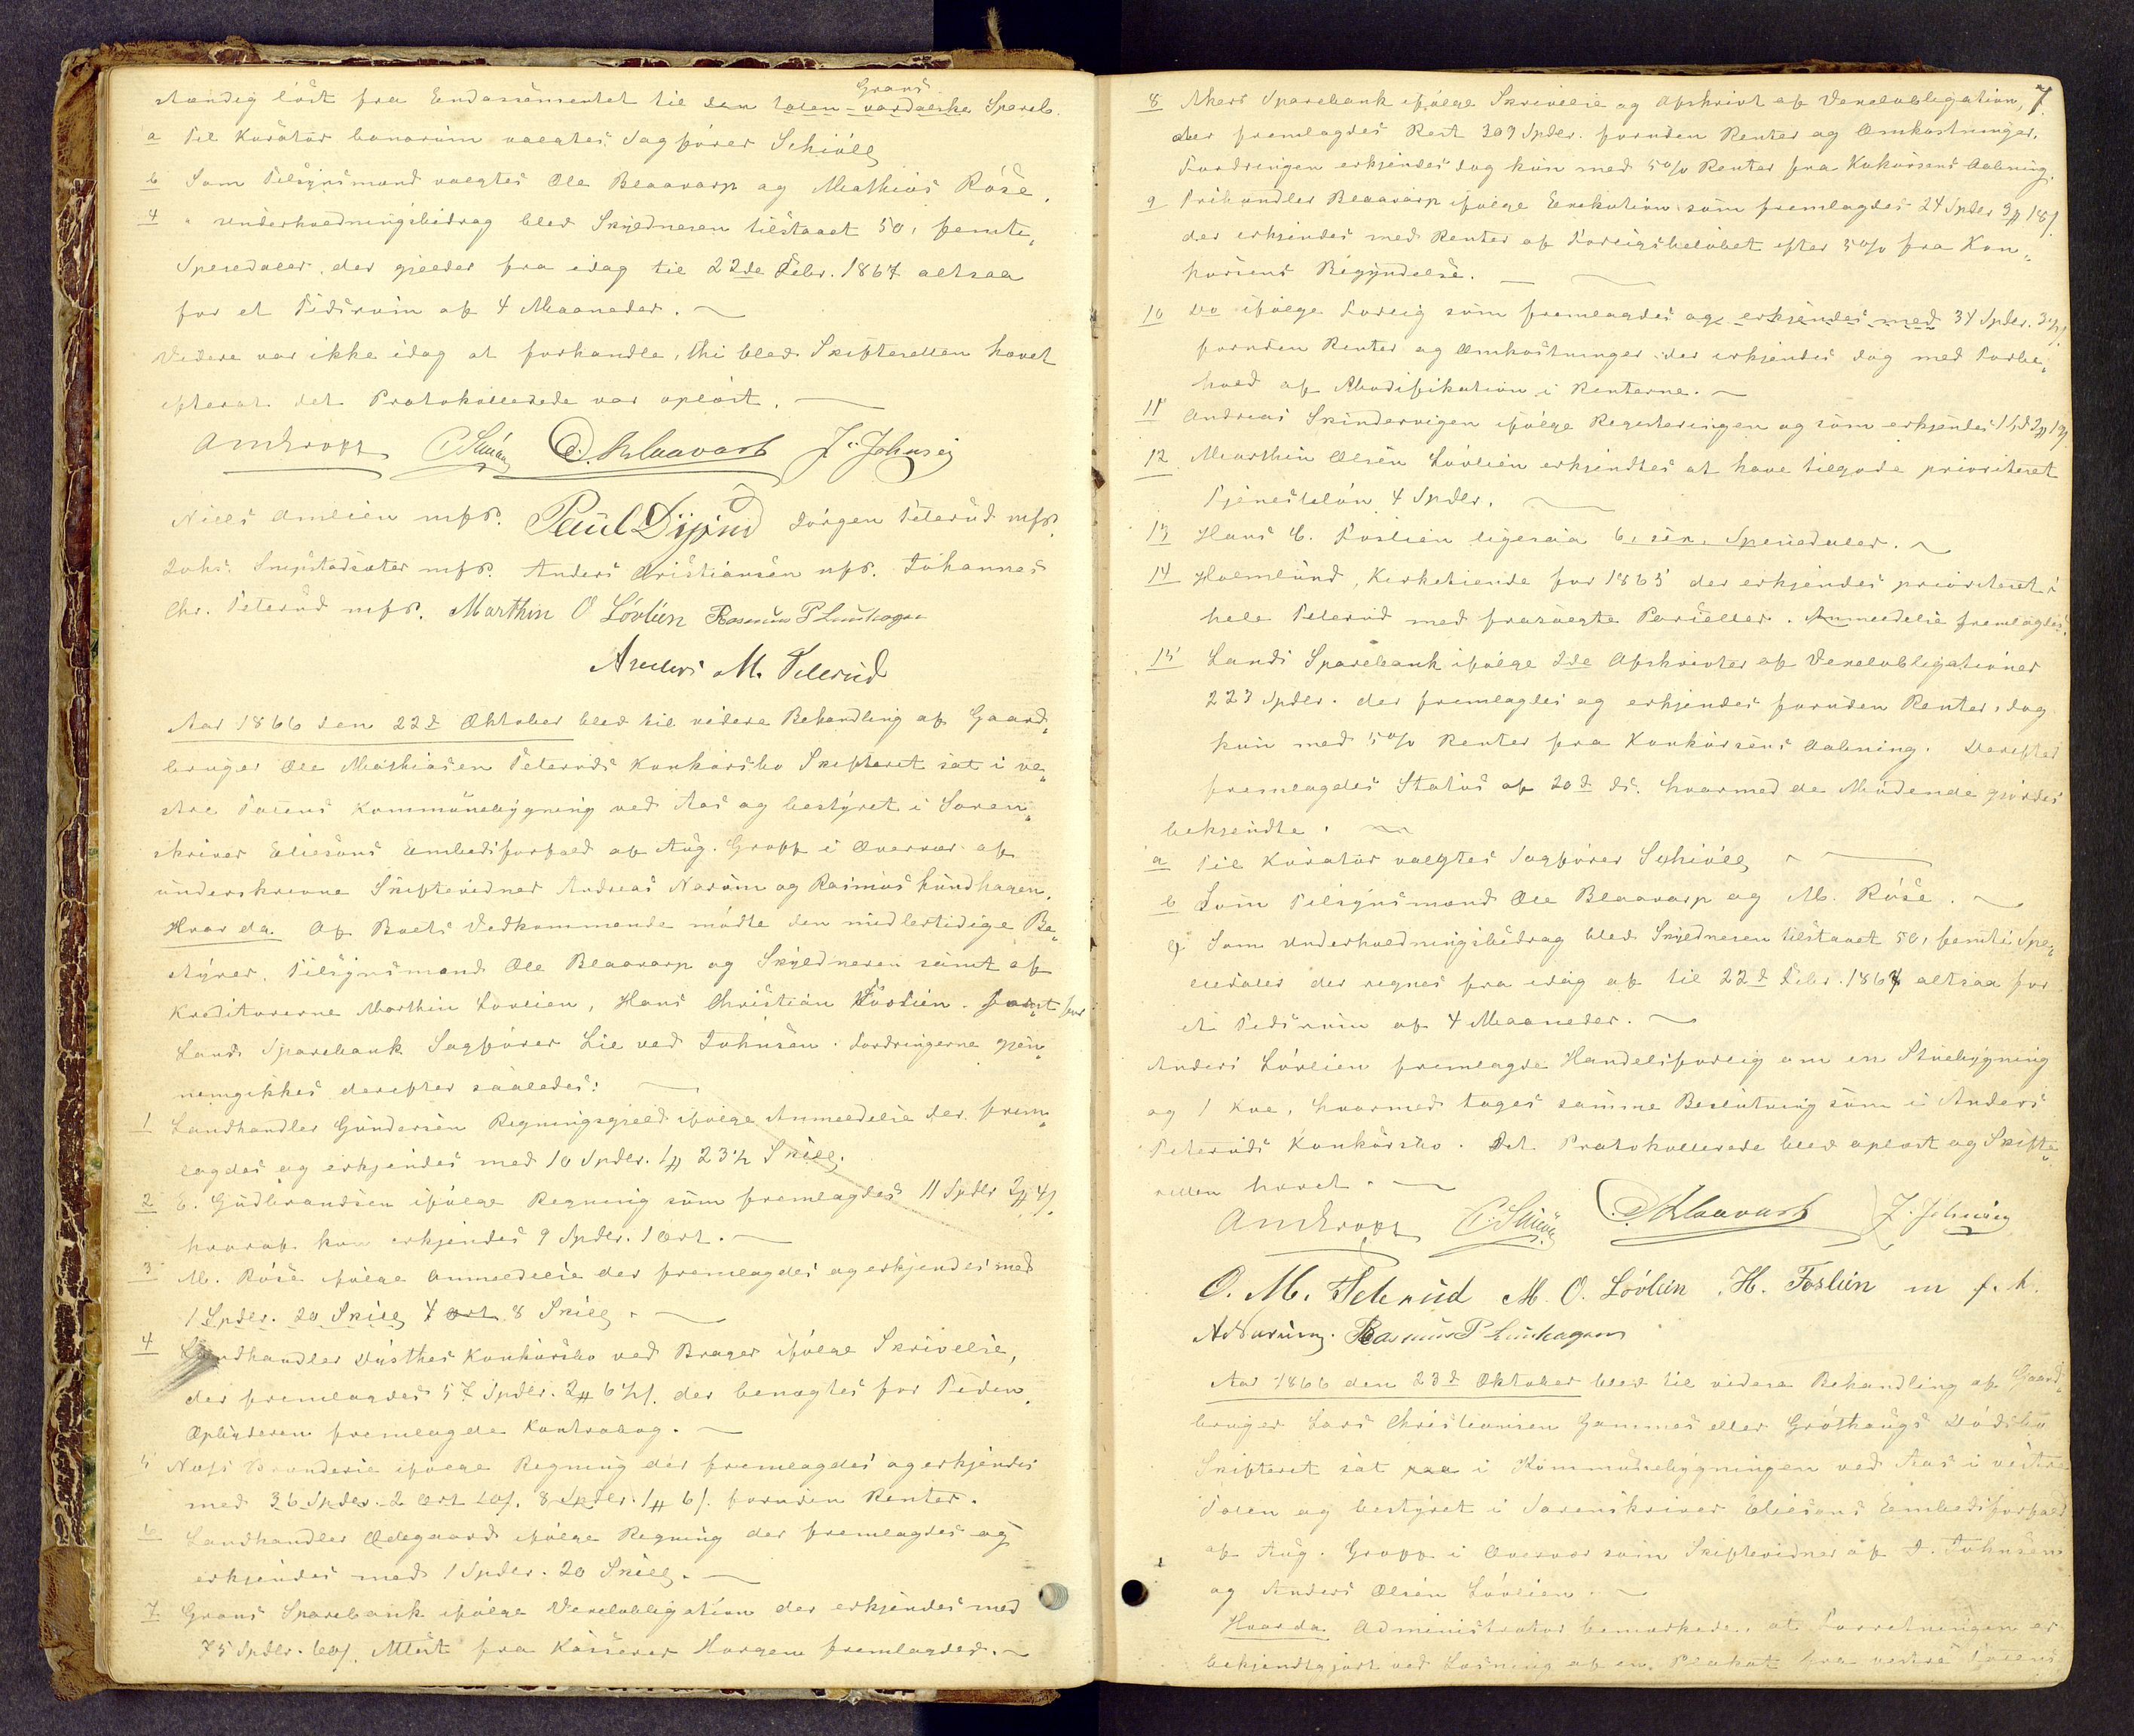 Grans
stændig løst fra Endossementet til den Toten-vardalske Spareb.
a Til Kurator bonorum valgtes Sagfører Schiøll
b Som Tilsynsmand valgtes Ole Blaavarp og Mathias Røse.
4 " Underholdningsbidrag blev Skyldneren tilstaaet 50, femti,
Speciedaler, der gjelder fra idag til 22de Febr. 1867 altsaa
for et Tidsrum af 4 Maaneder.
Videre var ikke idag at forhandle, thi blev Skifteretten hævet
efterat det Protokollerede var oplæst.
Aug Gropp C. Schiøll O. Blaavarp J. Johnsen
Niels Amlien mfP. Paul Jørgen Teterud mfP.
Johs. mfP. Anders Cristiansen mfP. Johannes
Chr. Teterud mfP. Marthin O Lövlien Rasmus P Lundhagen
Anders M. Teterud
Aar 1866 den 22d Oktober blev til videre Behandling af Gaard-
bruger Ole Mathiasen Teteruds Konkursbo Skifteret sat i ve-
stre Totens Kommunebygning ved Aas og bestyret i Soren-
skriver Eliesons Embedsforfald af Aug. Gropp i Overvær af
underskrevne Skiftevidner Andreas Narum og Rasmus Lundhagen.
Hvor da. Af Boets Vedkommende mødte den midlertidige Be-
styrer, Tilsynsmand Ole Blaavarp og Skyldneren samt af
Kreditorerne Marthin Lövlien, Hans Christian Foslien. samt for
Lands Sparebank Sagfører Lie ved Johnsen. Fordringerne gjen-
nemgikkes derefter saaledes:
1 Landhandler Gundersen Regningsgjeld ifølge Anmeldelse der frem-
lagdes og erkjendes med 10 Spdlr. 1 # 23½ Skill.
2 E. Gudbrandsen ifølge Regning som fremlagdes 11 Spdlr 2 # 4 ſ.
hvoraf kun erkjendes 9 Spdlr. 1 Ort.
3 M. Røse ifølge Anmeldelse der fremlagdes og erkjendes med
1 Spdlr. 20 Skill 4 Ort 8 Skill.
4 Landhandler Dusthes Konkursbo ved Brager ifølge Skrivelse,
der fremlagdes 57 Spdlr. 2 # 6½ ſ. der benægtes for Tiden.
Opbyderen fremlagde Kontrabog.
5 Næss Brænderie ifølge Regning der fremlagdes og erkjendes
med 36 Spdlr. 2 Ort 20 ſ. 8 Spdlr. 1 # 6 ſ. foruden Renter.
6 Landhandler Ødegaard ifølge Regning der fremlagdes og
erkjendes med 1 Spdlr. 20 Skill.
7 Grans Sparebank ifølge Vexelobligation der erkjendes med
75 Spdlr. 60 ſ. Attest fra Kasserer Horgen fremlagdes.
7
8 Akers Sparebank ifølge Skrivelse og Afskrivt af Vexelobligation,
der fremlagdes Rest 209 Spdlr. foruden Renter og Omkostninger.
Fordringen erkjendes dog kun med 5% Renter fra Kokursens Aabning.
9 Prihandler Blaavarp ifølge Exekution som fremlagdes 24 Spdlr 3 # 18 ſ.
der erkjendes med Renter af Forligsbeløbet efter 5% fra Kon-
kursens Begyndelse.
10 Do ifølge Forlig som fremlagdes og erkjendes med 34 Spdlr.
foruden Renter og Omkostninger der erkjendes dog med Forbe-
hold af Modifikation i Renterne.
11 Andreas Skindervigen ifølge Registeringen og som erkjendes
12 Marthin Olsen Lövlien erkjendtes at have tilgode prioriteret
Tjenesteløn 4 Spdlr.
13 Hans C. Foslien ligesaa 6, sex, Speciedaler.
14 Holmlund, Kirketiende for 1865 der erkjendes prioriteret i
hele Teterud med frasolgte Parseller. Anmeldelse fremlagdes.
15 Lands Sparebank ifølge 2de Afskrivter af Vexelobligationer
223 Spdlr. der fremlagtes og erkjendes foruden Renter, dog
kun med 5% Renter fra Konkursens Aabning. Derefter
fremlagdes Status af 20d ds. hvormed de Mødende gjordes
bekjendte.
a Til Kurator valgtes Sagfører Schiøll
b Som Tilsynsmand Ole Blaavarp og M. Røse.
c Som Underholdningsbidrag blev Skyldneren tilstaaet 50, femti Spe-
ciedaler der regnes fra idag af til 22d Febr. 1867 altsaa for
et Tidsrum af 4 Maaneder.
Anders Lövlien fremlagde Handelsforlig om en Stuebygning
og 1 Koe, hvormed tages samme Beslutning som i Anders
Teteruds Konkursbo. Det Protokollerede blev oplæst og Skifte-
retten hævet.
Aug Gropp C. Schiøll O. Blaavarp J. Johnsen
O. M. Teterud M. O. Lövlien H. Foslien m f. P.
A Narum. Rasmus P Lundhagen
Aar 1866 den 23d Oktober blev til videre Behandling af Gaard-
bruger Lars Christiansen Gammes eller Grøthaugs Dødsbo
Skifteret sat i Kommunebygningen ved Aas i vestre
Toten og bestyret i Sorenskriver Eliesons Embedsforfald
af Aug. Gropp i Overvær som Skiftevidner af J. Johnsen
og Anders Olsen Lövlien.
Hvorda Administrator bemærkede, at Forretningen er
bekjendtgjort ved Læsning af en Plakat fra vestre Totens